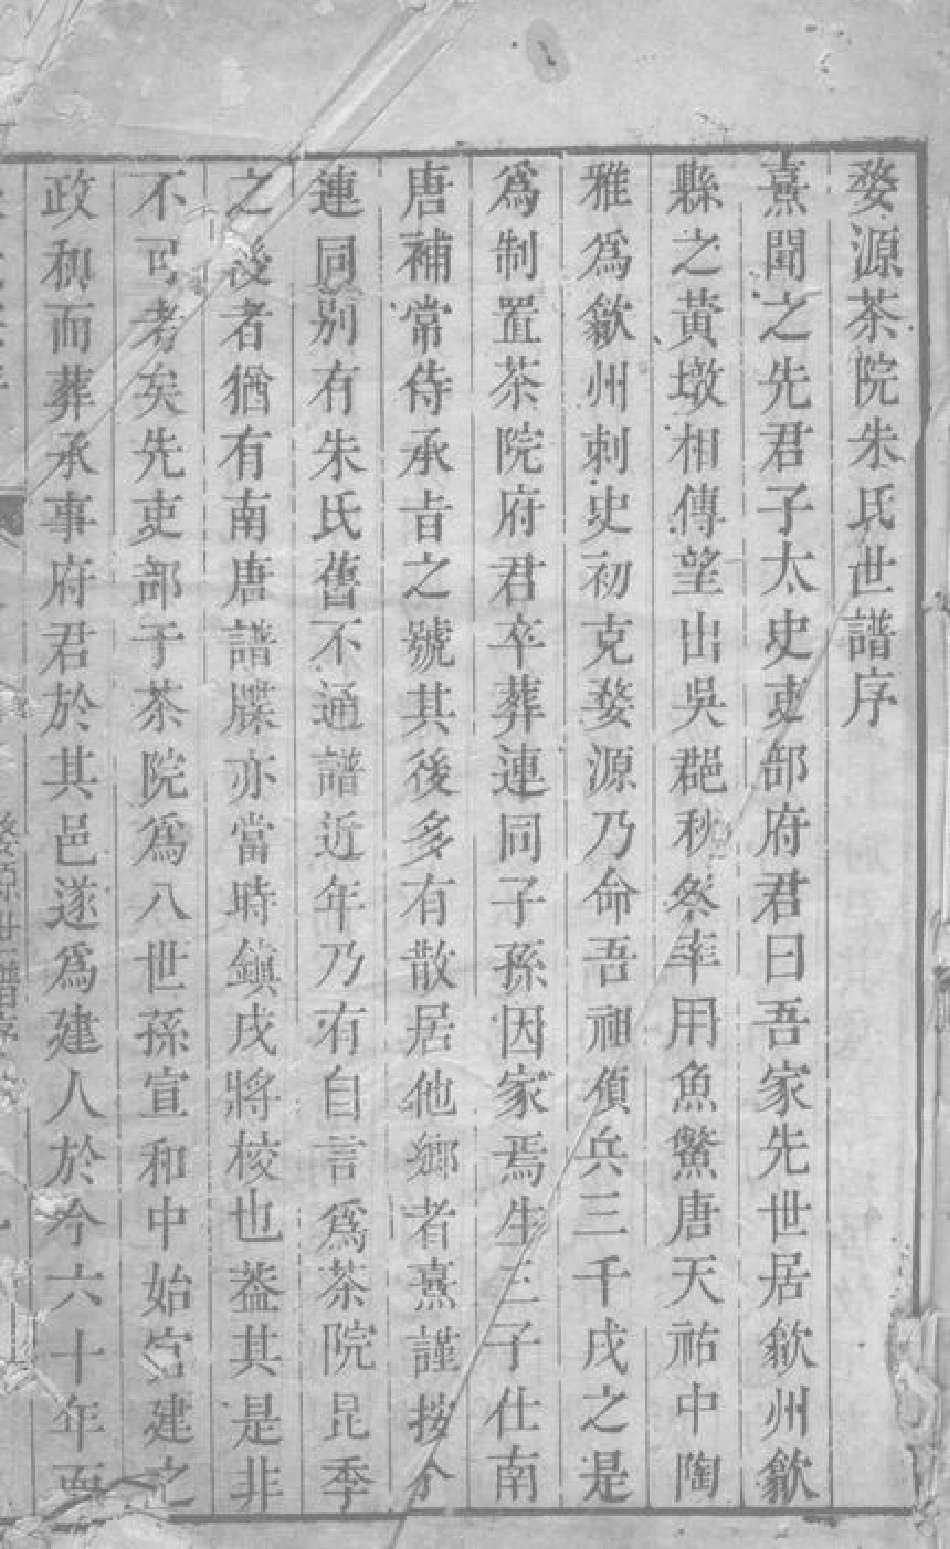 婺源茶院朱氏世譜序
熹聞之先君子太史吏部府君曰吾家先世居歙州歙
縣之黃墩相傳望出吳郡秋祭率用魚鱉唐天祐中陶
雅爲歙州刺史初克婺源乃命吾祖偵兵三千戍之是
爲制置茶院府君卒葬連同子孫因家焉生三子仕南
唐補常侍承旨之號其後多有散居他鄉者熹謹按今
連同別有朱氏舊不通譜近年乃有自言爲茶院昆季
之後者猶有南唐譜牒亦當時鎭戍將校也葢其是非
不可考矣先吏部于茶院爲八世孫宣和中始官建之
政和而葬承事府君於其邑遂爲建人於今六十年而
婺源世譜序